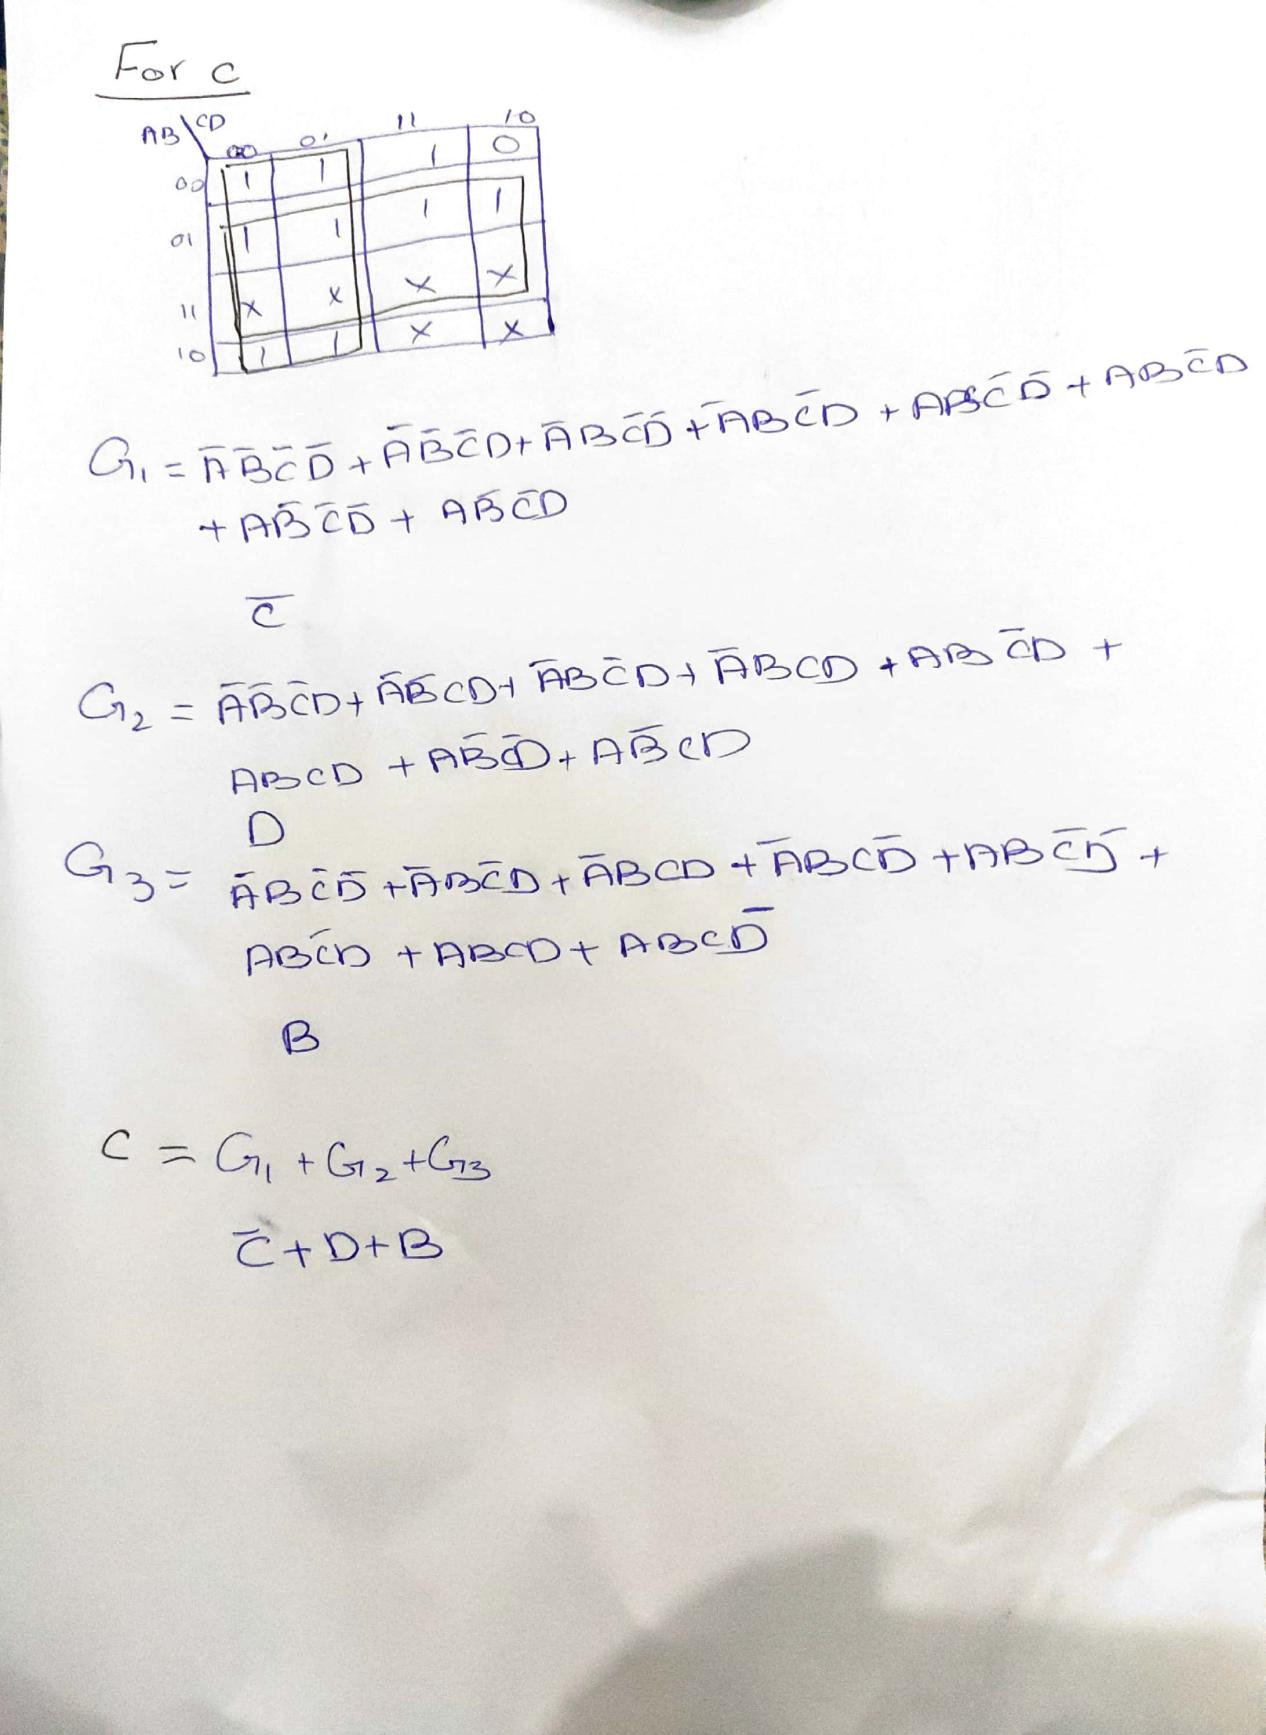 For c
AB\CD 00 01 11 10
00 1 1 1 0
01 1 1 1 1
11 x x x x
10 1 1 x x
G₁ = A̅B̅C̅D̅ + A̅B̅C̅D + A̅BC̅D̅ + A̅BC̅D + ABC̅D̅ + ABC̅D
+ AB̅C̅D̅ + AB̅C̅D
C̅
G₂ = A̅B̅C̅D + A̅B̅CD + A̅BC̅D + A̅BCD + ABC̅D +
ABCD + AB̅C̅D + AB̅CD
D
G₃ = A̅BC̅D̅ + A̅BC̅D + A̅BCD + A̅BCD̅ + ABC̅D̅ +
ABC̅D + ABCD + ABCD̅
B
C = G₁ + G₂ + G₃
C̅ + D + B